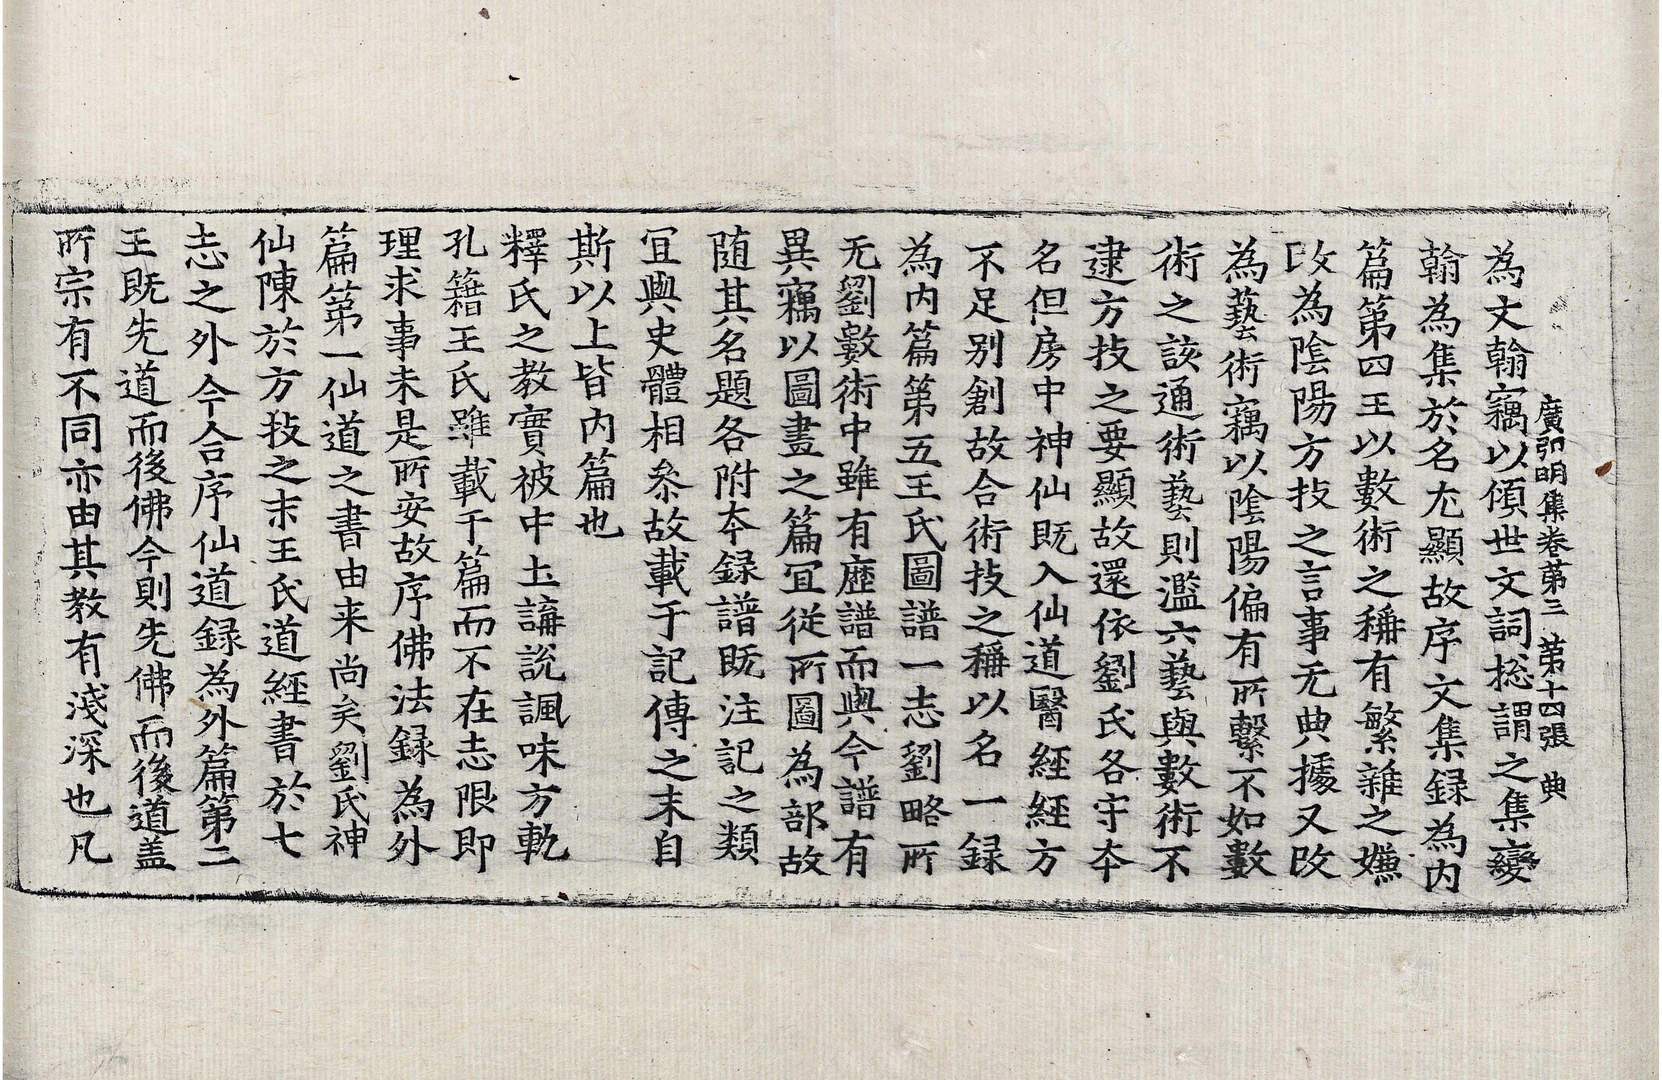 廣弘明集卷第三　第十四張　典
為文翰竊以傾世文詞揔謂之集變
翰為集於名尤顯故序文集録為内
篇第四王以數術之稱有繁雜之嫌
改為陰陽方技之言事无典據又改
為藝術竊以陰陽偏有所繫不如數
術之該通術藝則濫六藝與數術不
逮方技之要顯故還依劉氏各守本
名但房中神仙既入仙道醫經經方
不足别創故合術技之稱以名一録
為内篇第五王氏圖譜一志劉略所
无劉數術中雖有歷譜而與今譜有
異竊以圖畫之篇冝從所圖為部故
随其名題各附本録譜既注記之類
冝與史體相叅故載于記傳之末自
斯以上皆内篇也
釋氏之教實被中土講說諷味方軌
孔籍王氏雖載于篇而不在志限即
理求事未是所安故序佛法録為外
篇第一仙道之書由来尚矣劉氏神
仙陳於方技之末王氏道經書於七
志之外今合序仙道録為外篇第二
王既先道而後佛今則先佛而後道盖
所宗有不同亦由其教有淺深也凡